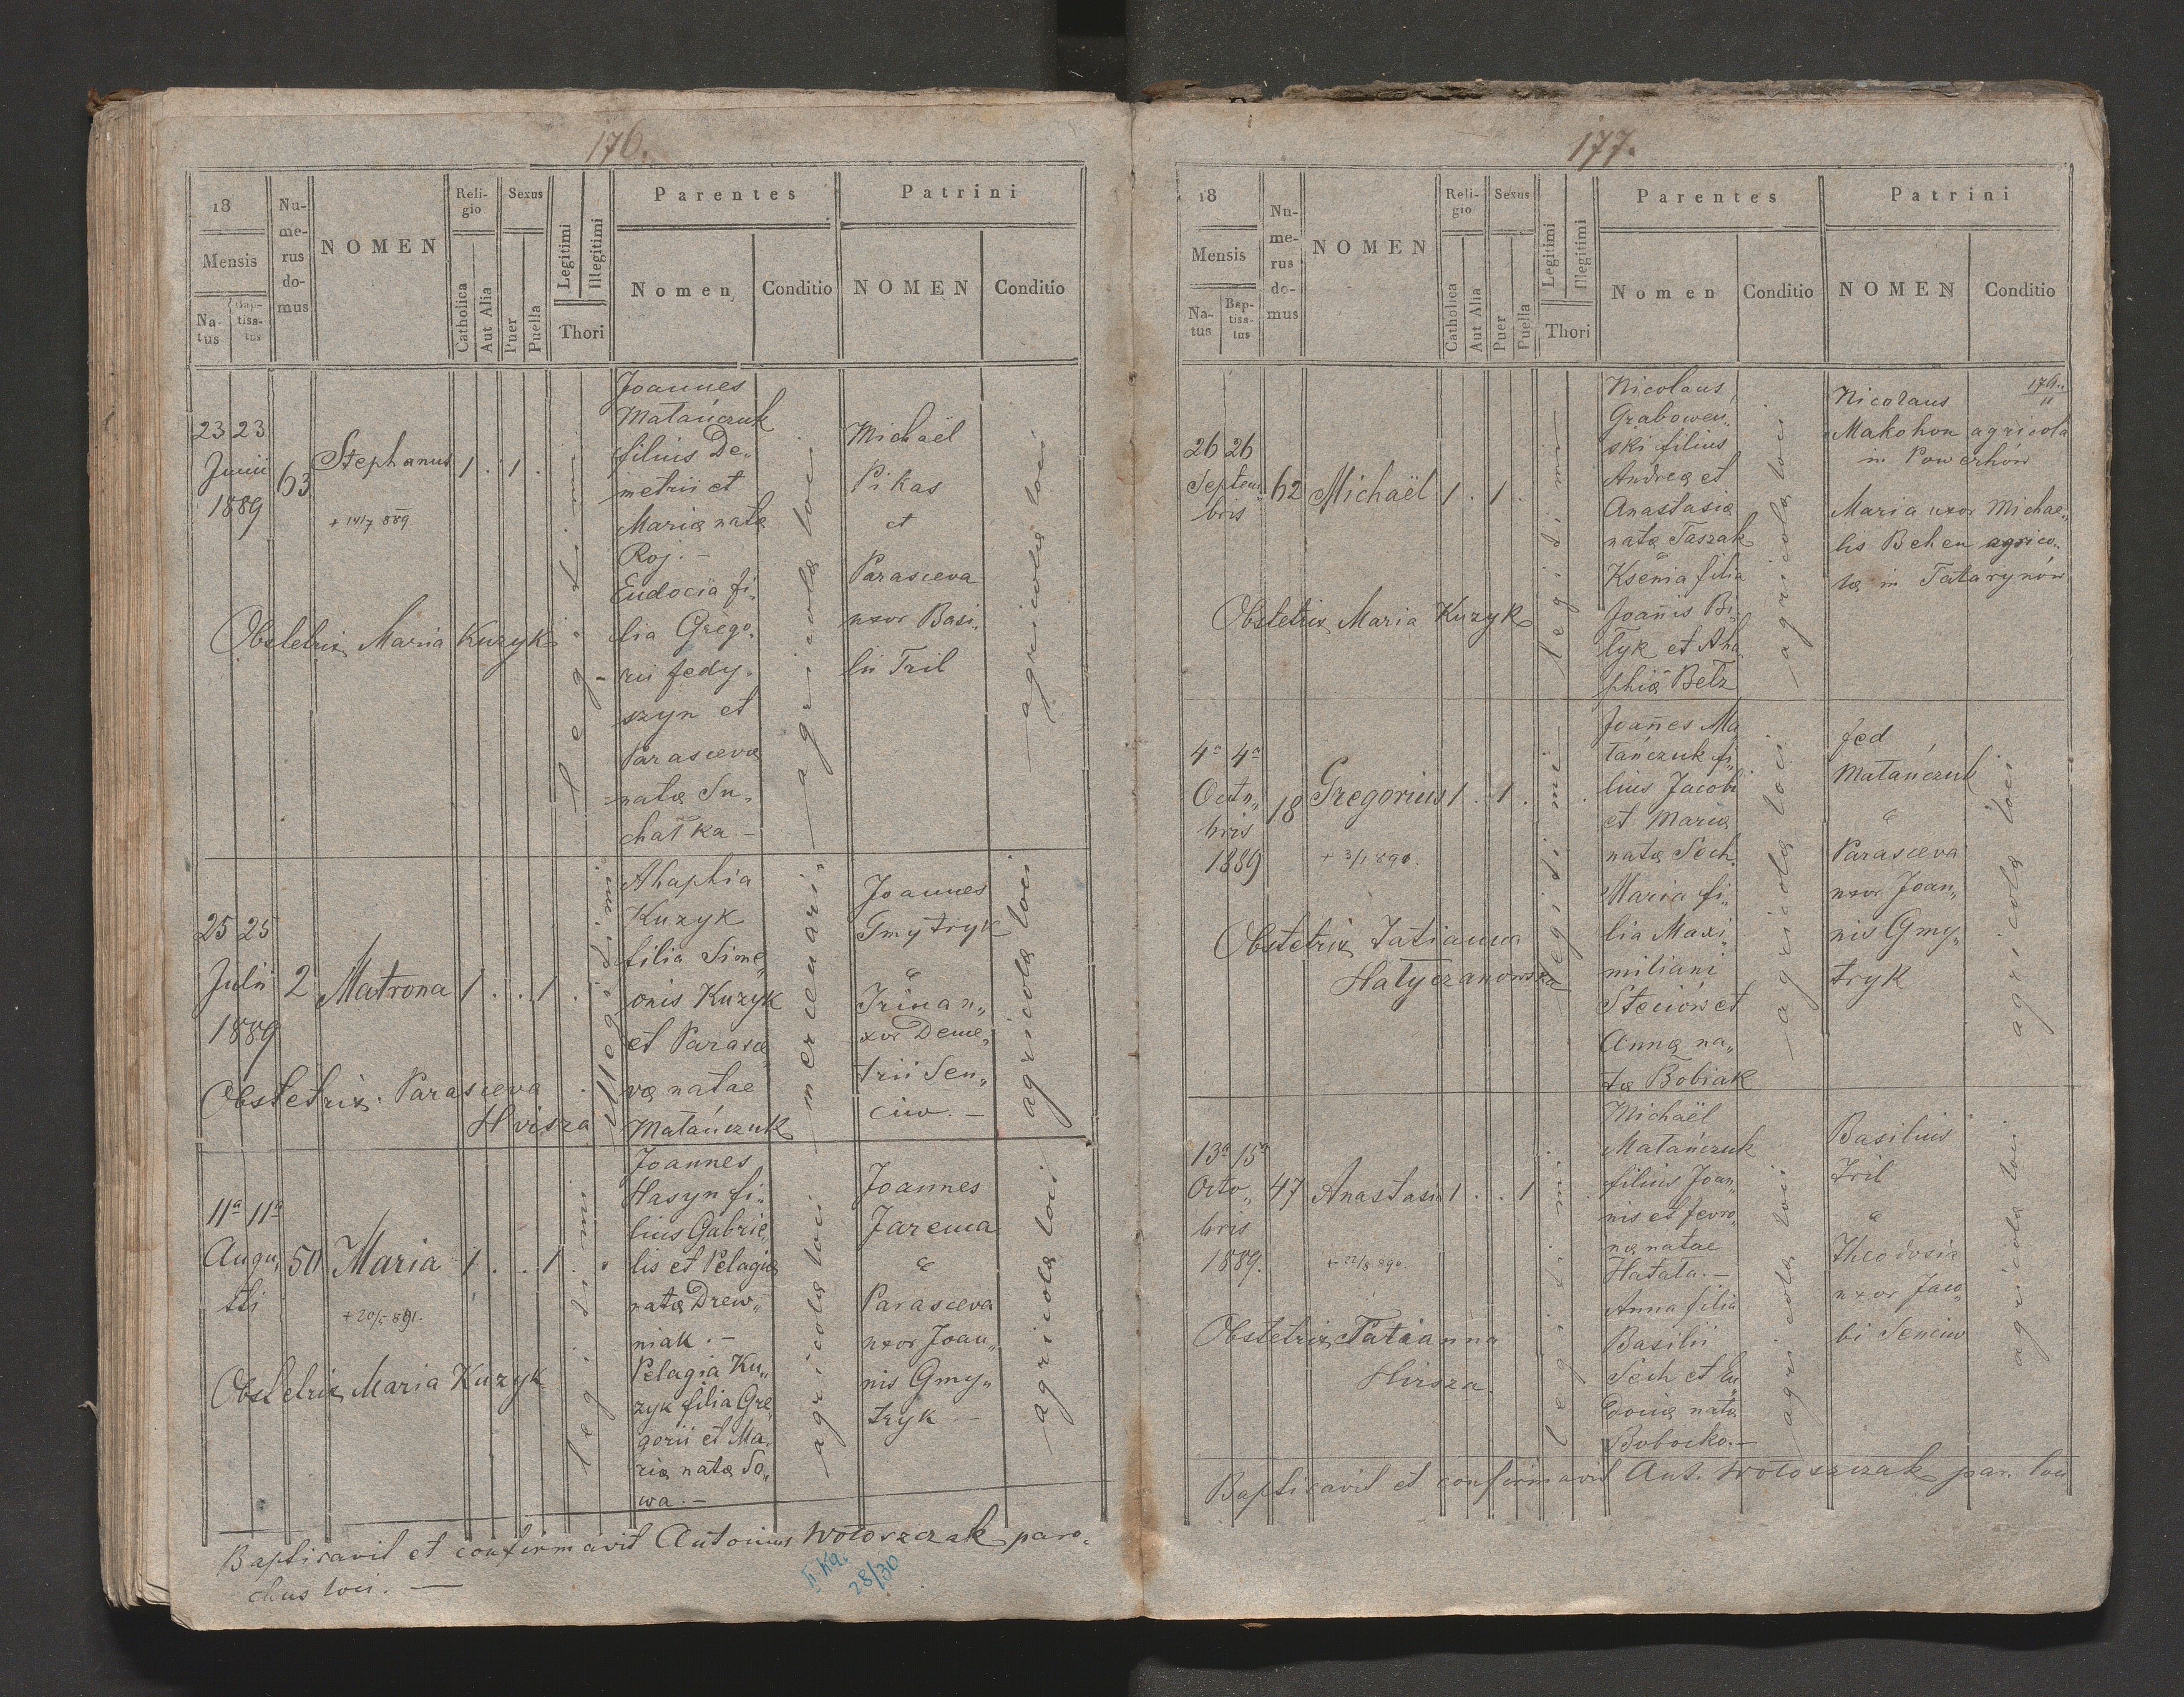 176.
18
Mensis
Na-
tus
Bap-
tisa-
tus
Nu-
me-
rus
do-
mus
NOMEN
Reli-
gio
Catholica
Aut Alia
Sexus
Puer
Puella
Legitimi
Illegitimi
Thori
Parentes
Nomen
Conditio
Patrini
NOMEN
Conditio
23 23
Junii
1889
63
Stephanus
1 . 1 .
+ 14/7 889
legitimi
Joannes
Matańczuk
filius De„
metrii et
Maria nata
Roj. –
Eudocia fi„
lia Grego„
rii Fedy„
szyn et
Parasceva
nata Su„
chatka –
agricola loci
Michaël
Pikas
et
Parasceva
uxor Basi„
lii Tril
agricola loci
Obstetrix Maria Kuzyk
25 25
Julii
1889
2
Matrona
1 . . 1 .
illegitimi
Ahaphia
Kuzyk
filia Sime„
onis Kuzyk
et Parasce
va natae
Matańczuk
mercenari
Joannes
Gmytryk
&
Irina u„
xor Deme„
trii Sen„
ciw. –
agricola loci
Obstetrix Parasceva
Hirsza
11a 11a
Augu„
sti
50
Maria
1 . . 1 .
+ 20/5 891.
legitimi
Joannes
Hasyn fi„
lius Gabrie„
lis et Pelagia
nata Drew„
niak. –
Pelagia Ku„
zyk filia Gre„
gorii et Ma„
ria nata So„
wa. –
agricola loci
Joannes
Jarema
&
Parasceva
uxor Joan„
nis Gmy„
tryk. –
agricola loci
Obstetrix Maria Kuzyk
Baptisavit et confirmavit Antonius Wołoszczak paro„
chus loci. —
II Kq.
28/30
177.
18
Mensis
Na-
tus
Bap-
tisa-
tus
Nu-
me-
rus
do-
mus
NOMEN
Reli-
gio
Catholica
Aut Alia
Sexus
Puer
Puella
Legitimi
Illegitimi
Thori
Parentes
Nomen
Conditio
Patrini
NOMEN
Conditio
26 26
Septem
bris
62
Michaël
1 . 1 .
legitimi
Nicolaus
Grabowen„
ski filius
Andrea et
Anastasia
nata Taszak
&
Ksenia filia
Joanis Bi„
łyk et Aha
phia Betz
agricola loci
Nicolaus
Makohon agricola
in Powerhów
Maria uxor Michae„
lis Behen agrico„
la in Tatarynów
Obstetrix Maria Kuzyk
4a 4a
Octo„
bris
1889
18
Gregorius
1 . 1 .
+ 3/1 890.
legitimi
Joannes Ma
tańczuk fi„
lius Jacobi
et Maria
nata Sech
Maria fi„
lia Maxi„
miliani
Steciów et
Anna na„
ta Bobiak
agricola loci
Fed
Matańczuk
&
Parasceva
uxor Joan„
nis Gmy„
tryk
agricola loci
Obstetrix Tatianna
Hałyczanowska
13a 15a
Octo„
bris
1889.
47
Anastasia
1 . . 1 .
+ 22/8 890.
legitimi
Michaël
Matańczuk
filius Joan„
nis et Fevro„
na natae
Hatala. –
Anna filia
Basilii
Sech et Eu„
docia nata
Bobecko. –
agricola loci
Basilius
Tril
&
Theodosia
uxor Jaco„
bi Senciw
agricola loci
Obstetrix Tatianna
Hirsza.
Baptisavit et confirmavit Ant. Wołoszczak par. loci